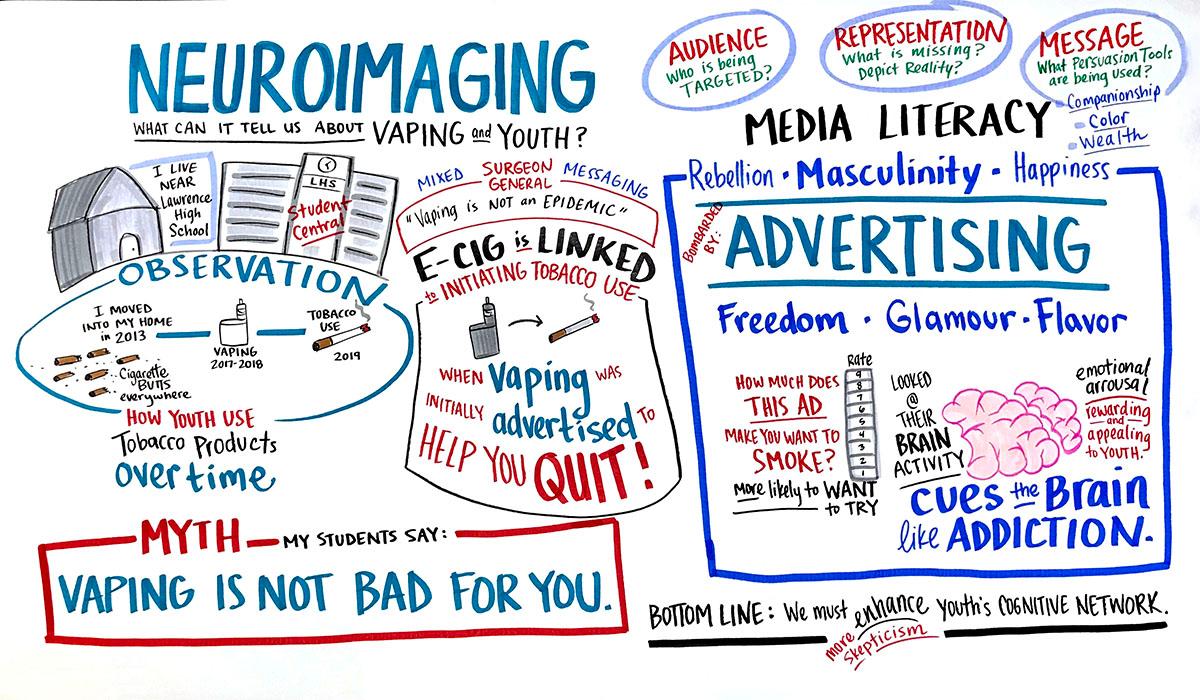 NEUROIMAGING
WHAT CAN IT TELL US ABOUT VAPING and YOUTH?
I LIVE
NEAR
Lawrence
High
School
LHS
Student
Central
OBSERVATION
I MOVED
INTO MY HOME
in 2013
Cigarette
BUTTS
everywhere
VAPING
2017-2018
TOBACCO
USE
2019
HOW YOUTH USE
Tobacco Products
over time
MIXED SURGEON GENERAL MESSAGING
"Vaping is NOT an EPIDEMIC"
E-CIG is LINKED
to INITIATING TOBACCO USE
WHEN Vaping WAS
INITIALLY advertised TO
HELP YOU QUIT!
MYTH MY STUDENTS SAY:
VAPING IS NOT BAD FOR YOU.
AUDIENCE
Who is being
TARGETED?
REPRESENTATION
What is missing?
Depict Reality?
MESSAGE
What Persuasion Tools
are being used?
Companionship
Color
Wealth
MEDIA LITERACY
Rebellion · Masculinity · Happiness
BOMBARDED
BY:
ADVERTISING
Freedom · Glamour · Flavor
HOW MUCH DOES
THIS AD
MAKE YOU WANT TO
SMOKE?
Rate
9
8
7
6
5
4
3
2
1
more likely to WANT
to TRY
LOOKED
@
THEIR
BRAIN
ACTIVITY
emotional
arousal
rewarding
and
appealing
to YOUTH.
cues the Brain
like ADDICTION.
BOTTOM LINE: We must enhance youth's COGNITIVE NETWORK.
more
skepticism